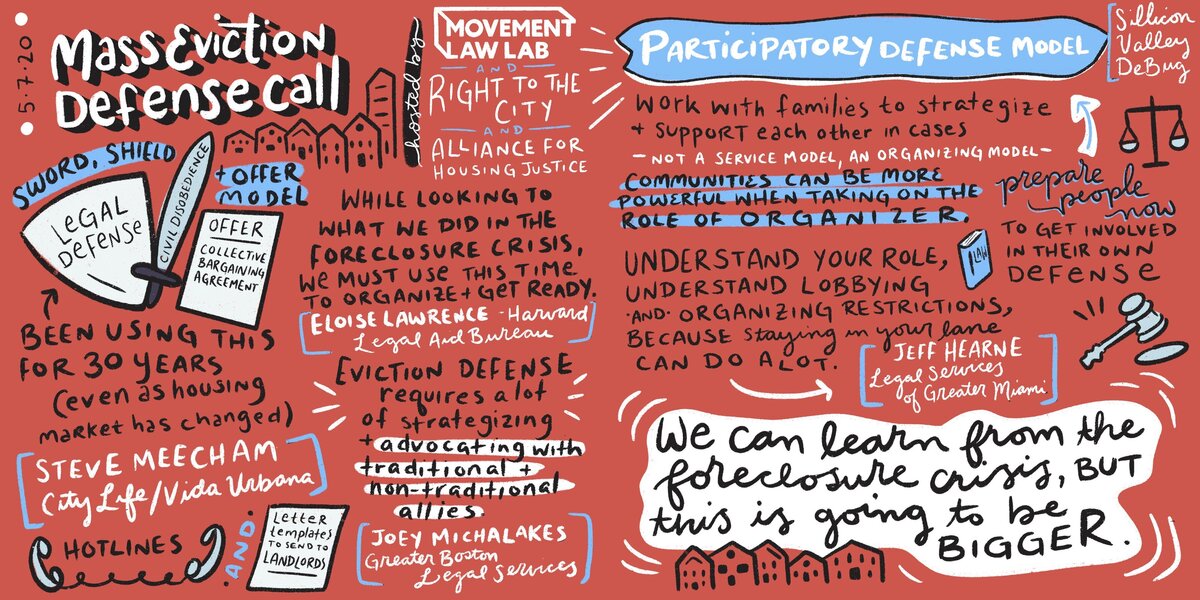 5.7.20
Mass Eviction
Defense Call
hosted by
MOVEMENT
LAW LAB
AND
RIGHT TO THE
CITY
AND
ALLIANCE FOR
HOUSING JUSTICE
SWORD, SHIELD
+ OFFER
MODEL
LEGAL
DEFENSE
CIVIL DISOBEDIENCE
OFFER
COLLECTIVE
BARGAINING
AGREEMENT
BEEN USING THIS
FOR 30 YEARS
(even as housing
market has changed)
STEVE MEECHAM
City Life/Vida Urbana
HOTLINES
AND
Letter
templates
TO SEND TO
LANDLORDS
WHILE LOOKING TO
WHAT WE DID IN THE
FORECLOSURE CRISIS,
WE MUST USE THIS TIME
TO ORGANIZE + GET READY.
ELOISE LAWRENCE - Harvard
Legal Aid Bureau
EVICTION DEFENSE
requires a lot
of strategizing
+ advocating with
traditional +
non-traditional
allies.
JOEY MICHALAKES
Greater Boston
Legal Services
PARTICIPATORY DEFENSE MODEL
Sillicon
Valley
DeBug
Work with families to strategize
+ support each other in cases
- NOT A SERVICE MODEL, AN ORGANIZING MODEL -
COMMUNITIES CAN BE MORE
POWERFUL WHEN TAKING ON THE
ROLE OF ORGANIZER.
prepare
people
now
TO GET INVOLVED
IN THEIR OWN
DEFENSE
LAW
UNDERSTAND YOUR ROLE,
UNDERSTAND LOBBYING
·AND· ORGANIZING RESTRICTIONS,
BECAUSE staying in your lane
CAN DO A LOT.
JEFF HEARNE
Legal Services
of Greater Miami
We can learn from the
foreclosure crisis, BUT
this is going to be
BIGGER.